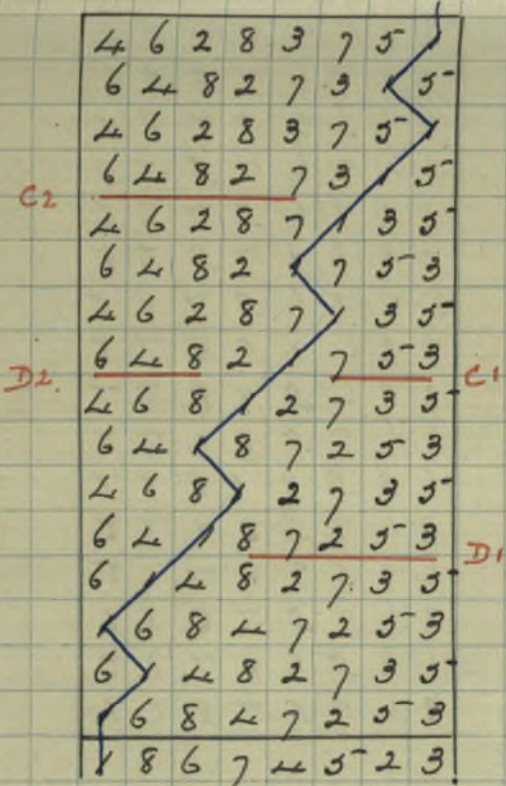 4 6 2 8 3 7 5 1
6 4 8 2 7 3 1 5
4 6 2 8 3 7 5 1
6 4 8 2 7 3 1 5
C2
4 6 2 8 7 1 3 5
6 4 8 2 1 7 5 3
4 6 2 8 7 1 3 5
6 4 8 2 1 7 5 3
D2. C1
4 6 8 1 2 7 3 5
6 4 1 8 7 2 5 3
4 6 8 1 2 7 3 5
6 4 1 8 7 2 5 3
D1
6 1 4 8 2 7 3 5
1 6 8 4 7 2 5 3
6 1 4 8 2 7 3 5
1 6 8 4 7 2 5 3
1 8 6 7 4 5 2 3